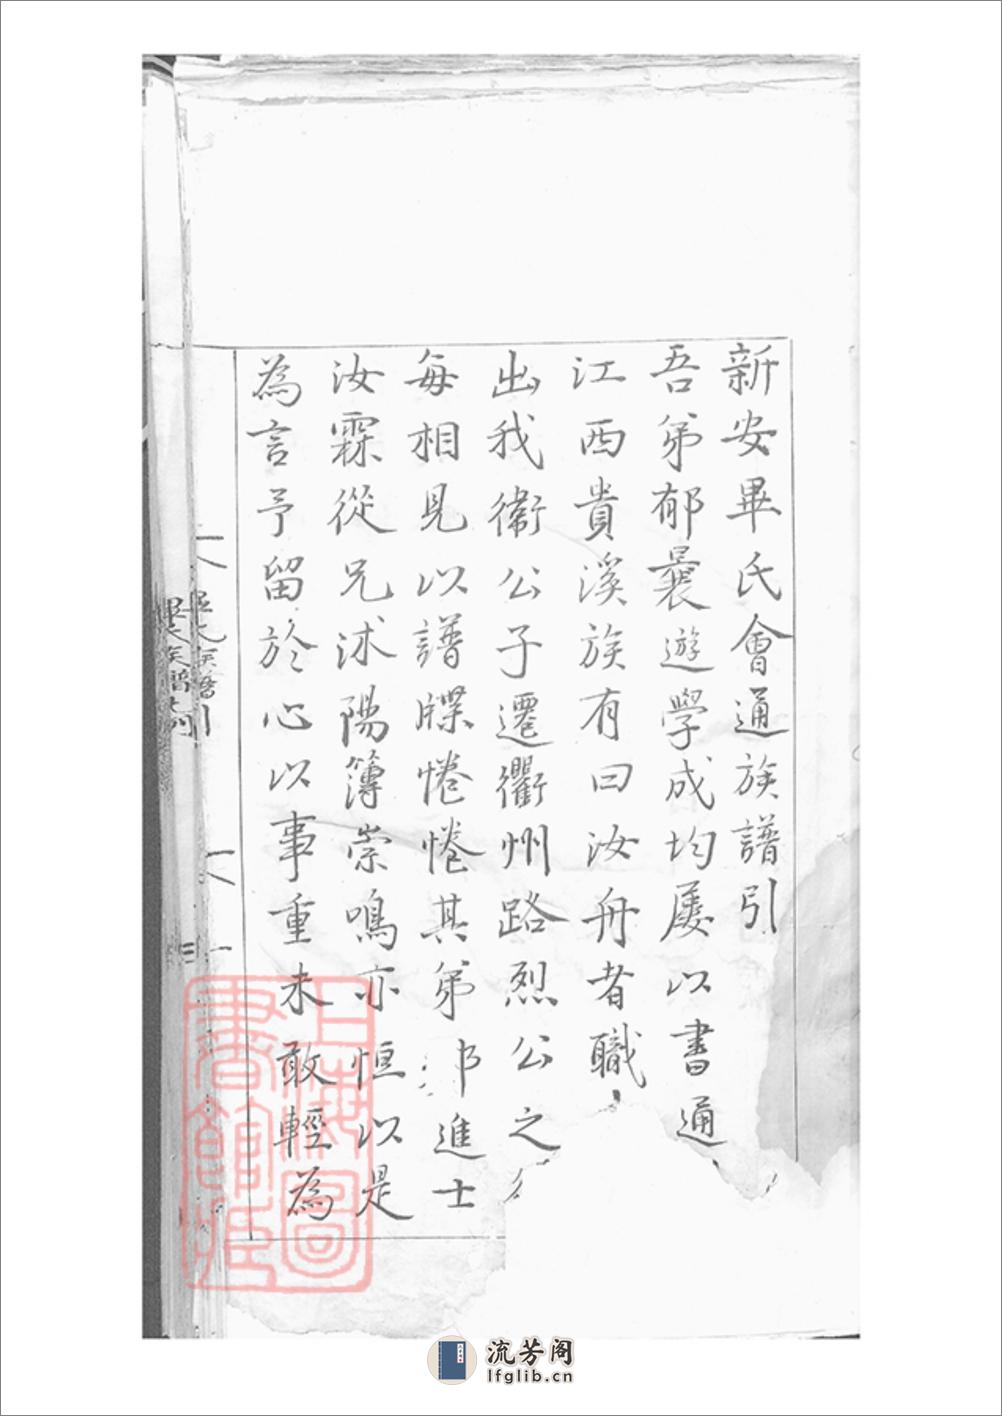 新安畢氏會通族譜引
吾弟郁曩遊學成均屡以書通
江西貴溪族有曰汝舟者職
出我衛公子遷衢州路烈公之
每相見以譜牒惓惓其弟進士
汝霖從兄述陽簿崇鳴亦恒以是
為言予留於心以事重未敢輕為
畢氏族譜引
上海圖書館藏
流芳阁
lfglib.cn